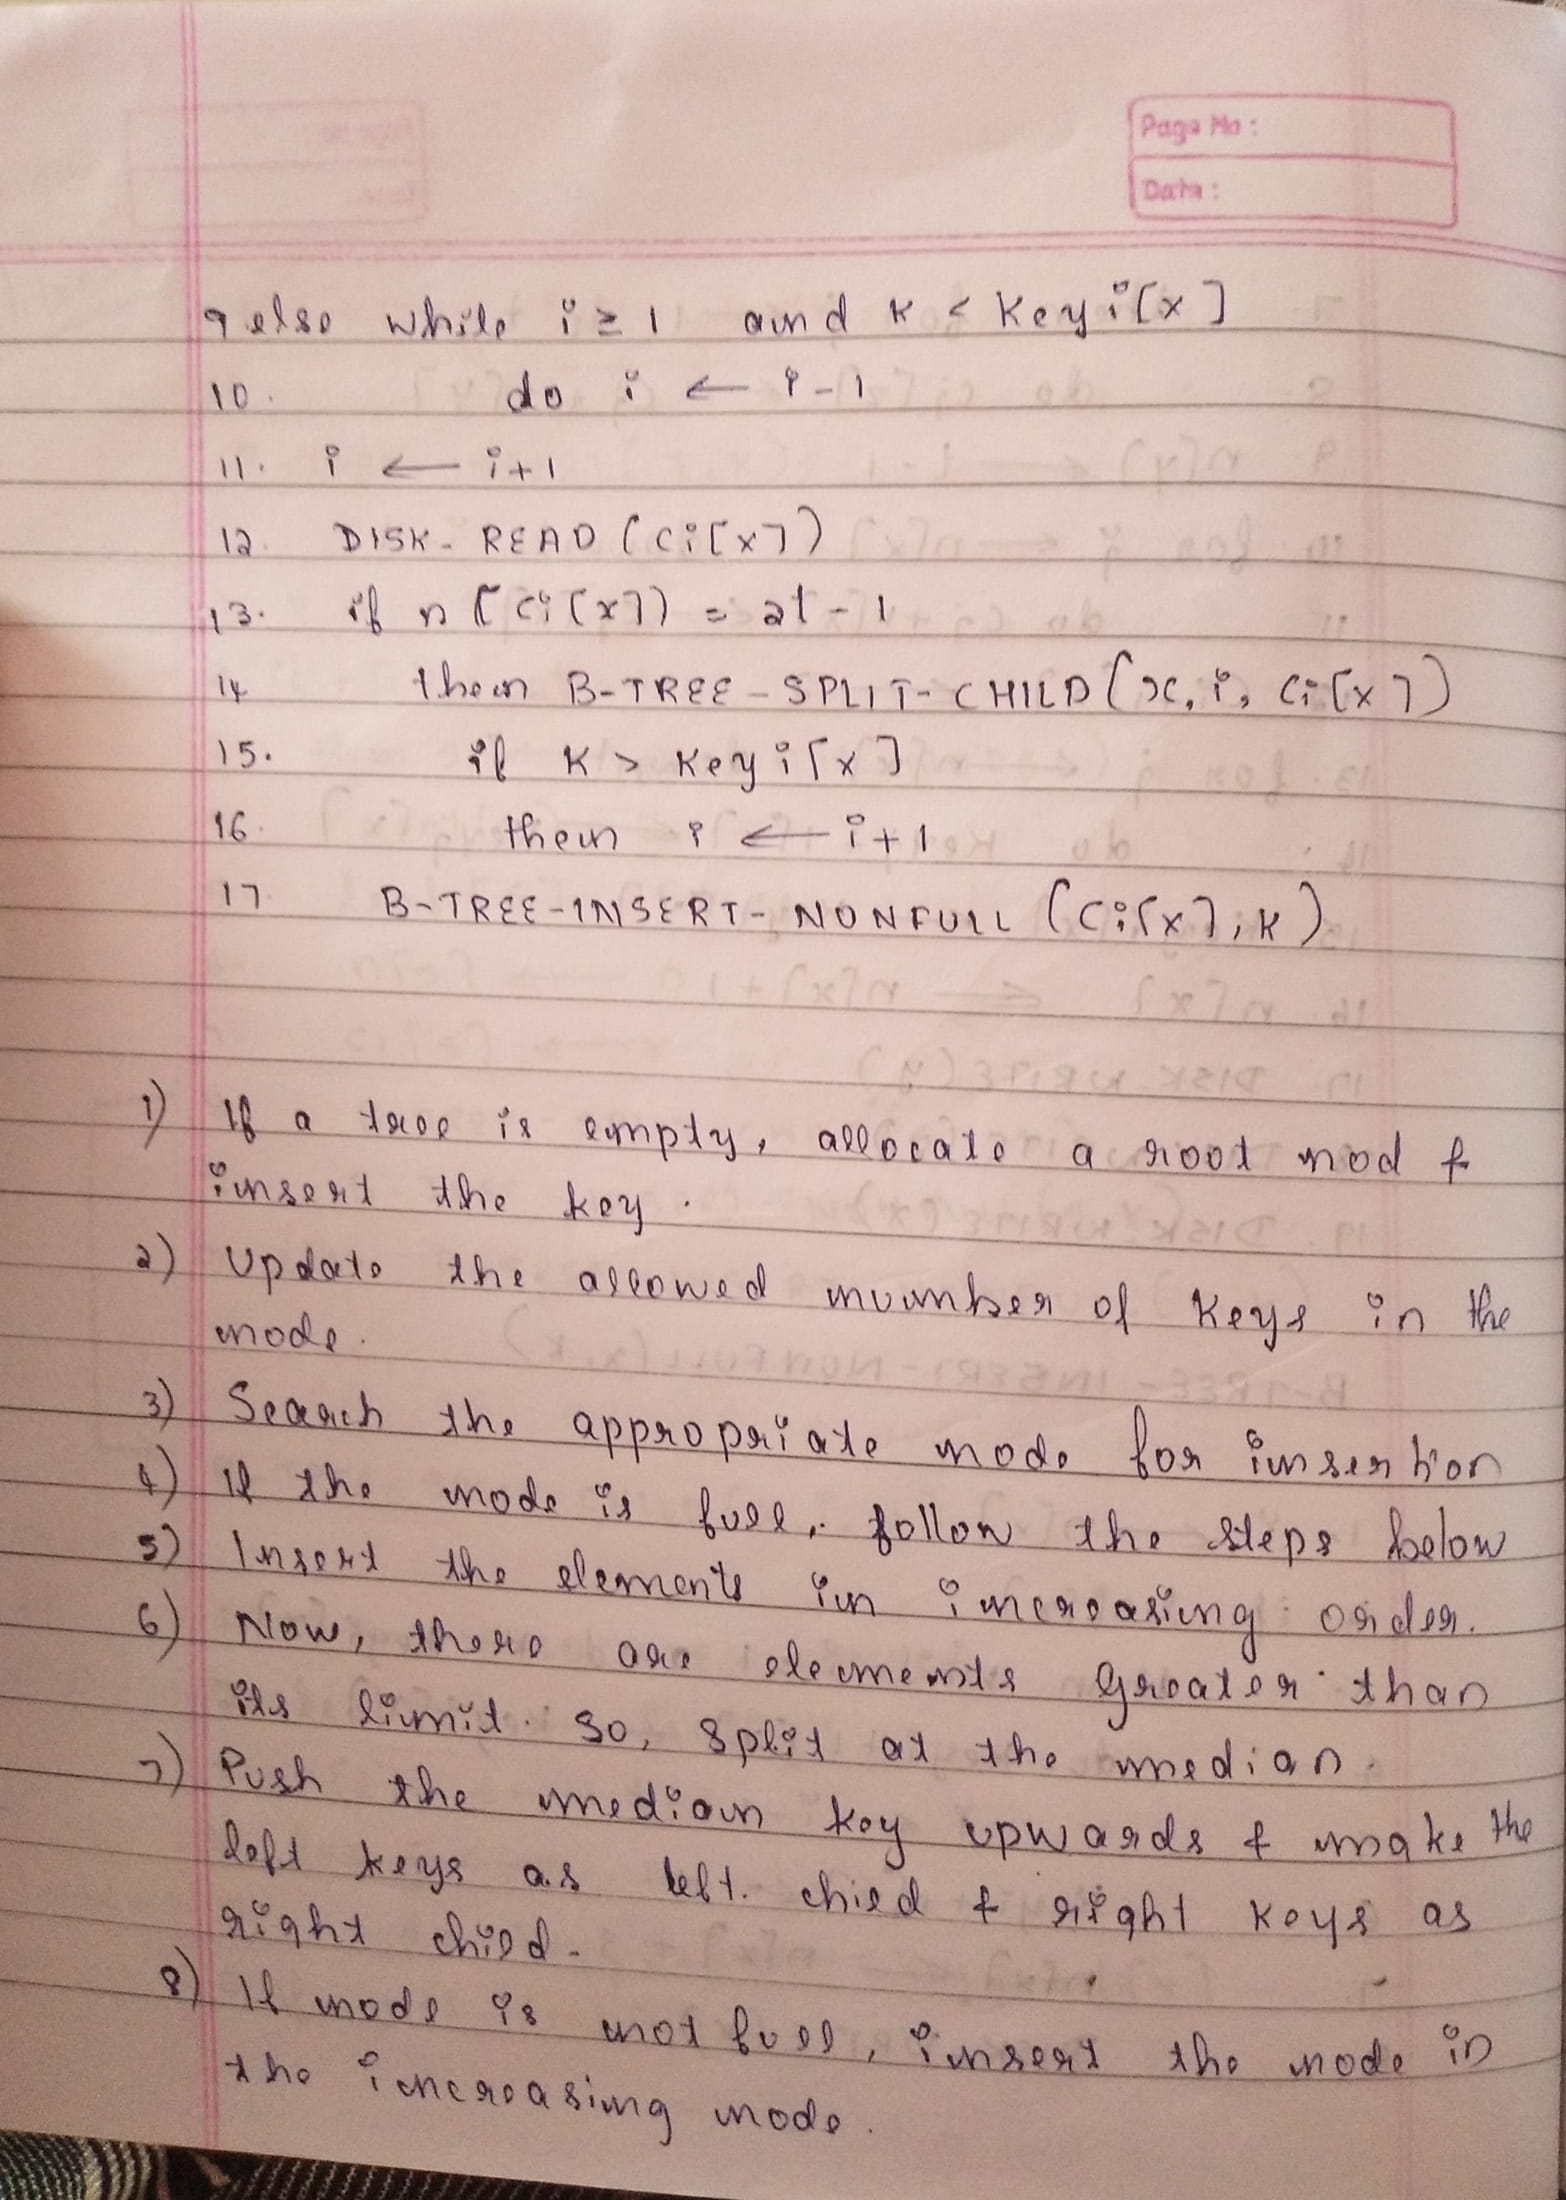 Page No :
Date :
9 else while i ≥ 1 and K < Keyi[x]
10. do i ← i-1
11. i ← i+1
12. DISK-READ (Ci[x])
13. if n [Ci[x]) = 2t-1
14 then B-TREE-SPLIT-CHILD (x, i, Ci[x])
15. if K > Keyi[x]
16. then i ← i+1
17 B-TREE-INSERT-NONFULL (Ci[x], K)
1) If a tree is empty, allocate a root nod &
insert the key.
2) Update the allowed number of Keys in the
node.
3) Search the appropriate node for insertion
4) If the node is full, follow the steps below
5) Insert the elements in increasing order.
6) Now, there are elements greater than
its limit. So, split at the median.
7) Push the median key upwards & make the
left keys as left child & right keys as
right child.
8) If node is not full, insert the node in
the increasing node.